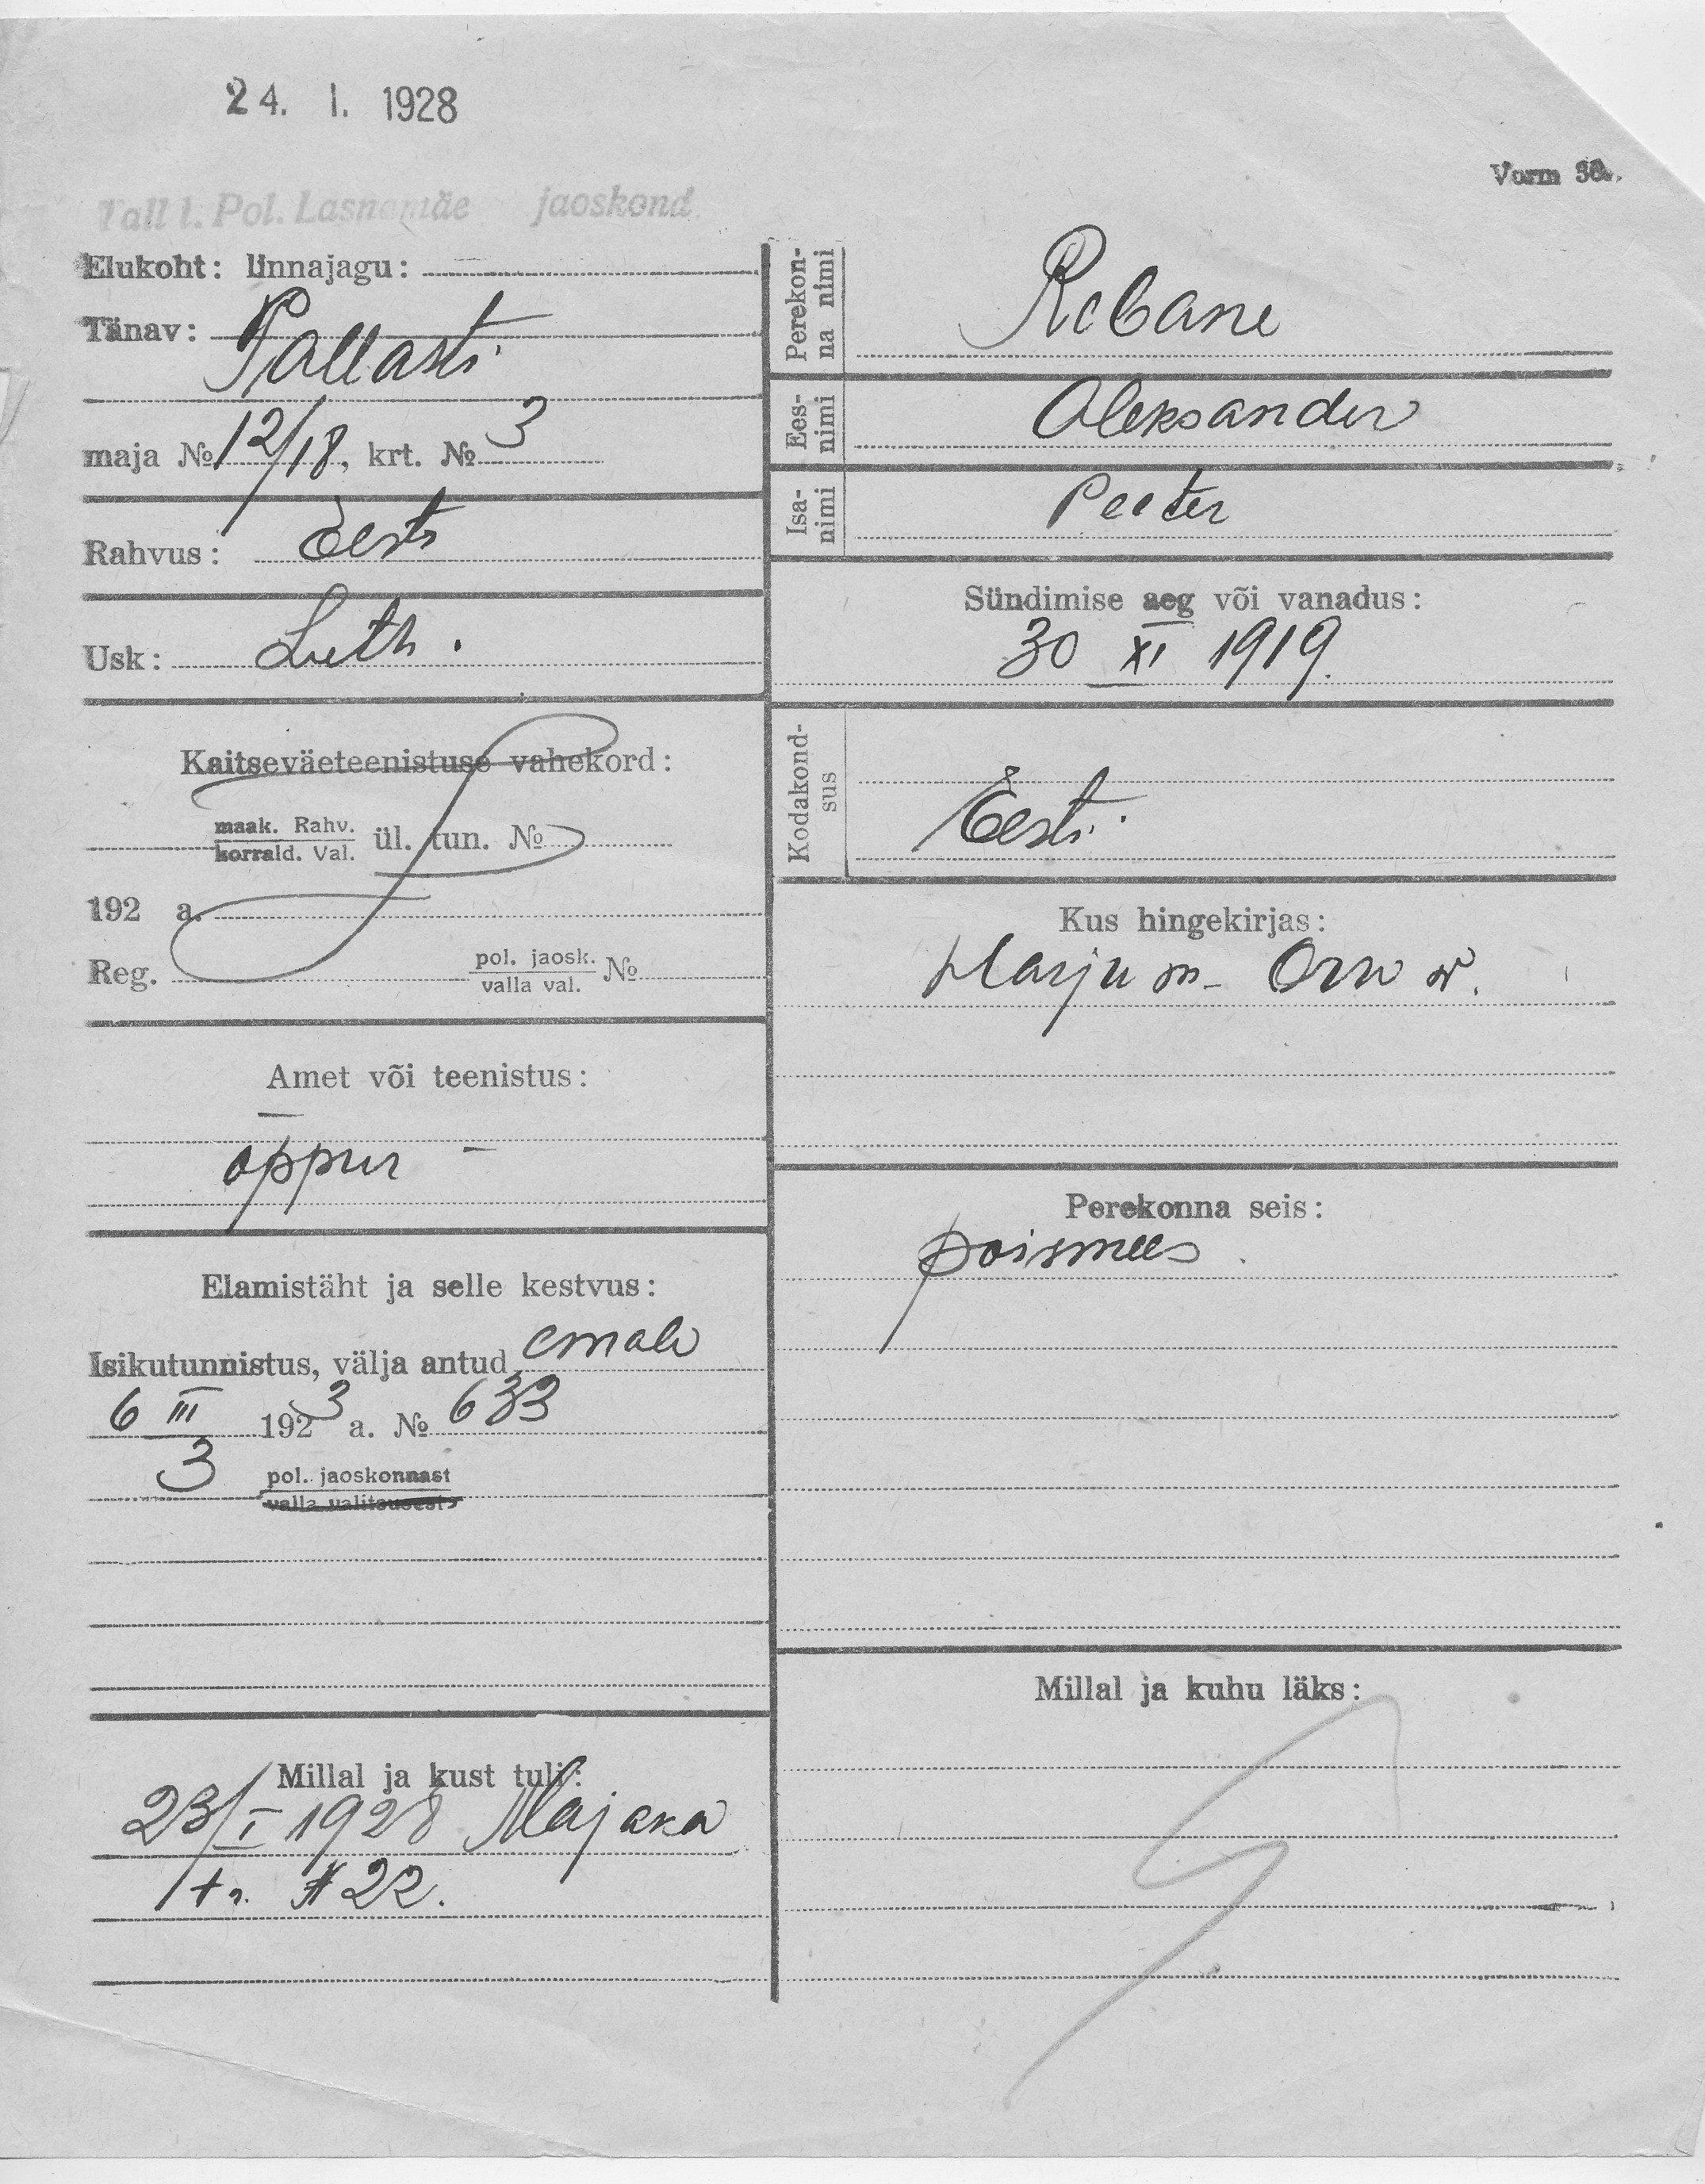 24. I. 1928
Vorm 30.
Tall l. Pol. Lasnamäe jaoskond
Elukoht: linnajagu:
Tänav: Pallasti
maja № 12/18, krt. № 3
Rahvus: Eesti
Usk: Luth.
Kaitseväeteenistuse vahekord:
maak. Rahv.
korrald. Val. ül. tun. №
192 a.
Reg. pol. jaosk. №
valla val.
Amet või teenistus:
õppur
Elamistäht ja selle kestvus:
Isikutunnistus, välja antud emale
6 III 1923 a. № 633
3 pol. jaoskonnast
valla valitsusest
Millal ja kust tuli:
23/I 1928 Majaka
tn. № 22.
Perekonna nimi Rebane
Eesnimi Aleksander
Isanimi Peeter
Sündimise aeg või vanadus:
30 XI 1919.
Kodakondsus Eesti.
Kus hingekirjas:
Harju m.
Perekonna seis:
poismees
Millal ja kuhu läks: